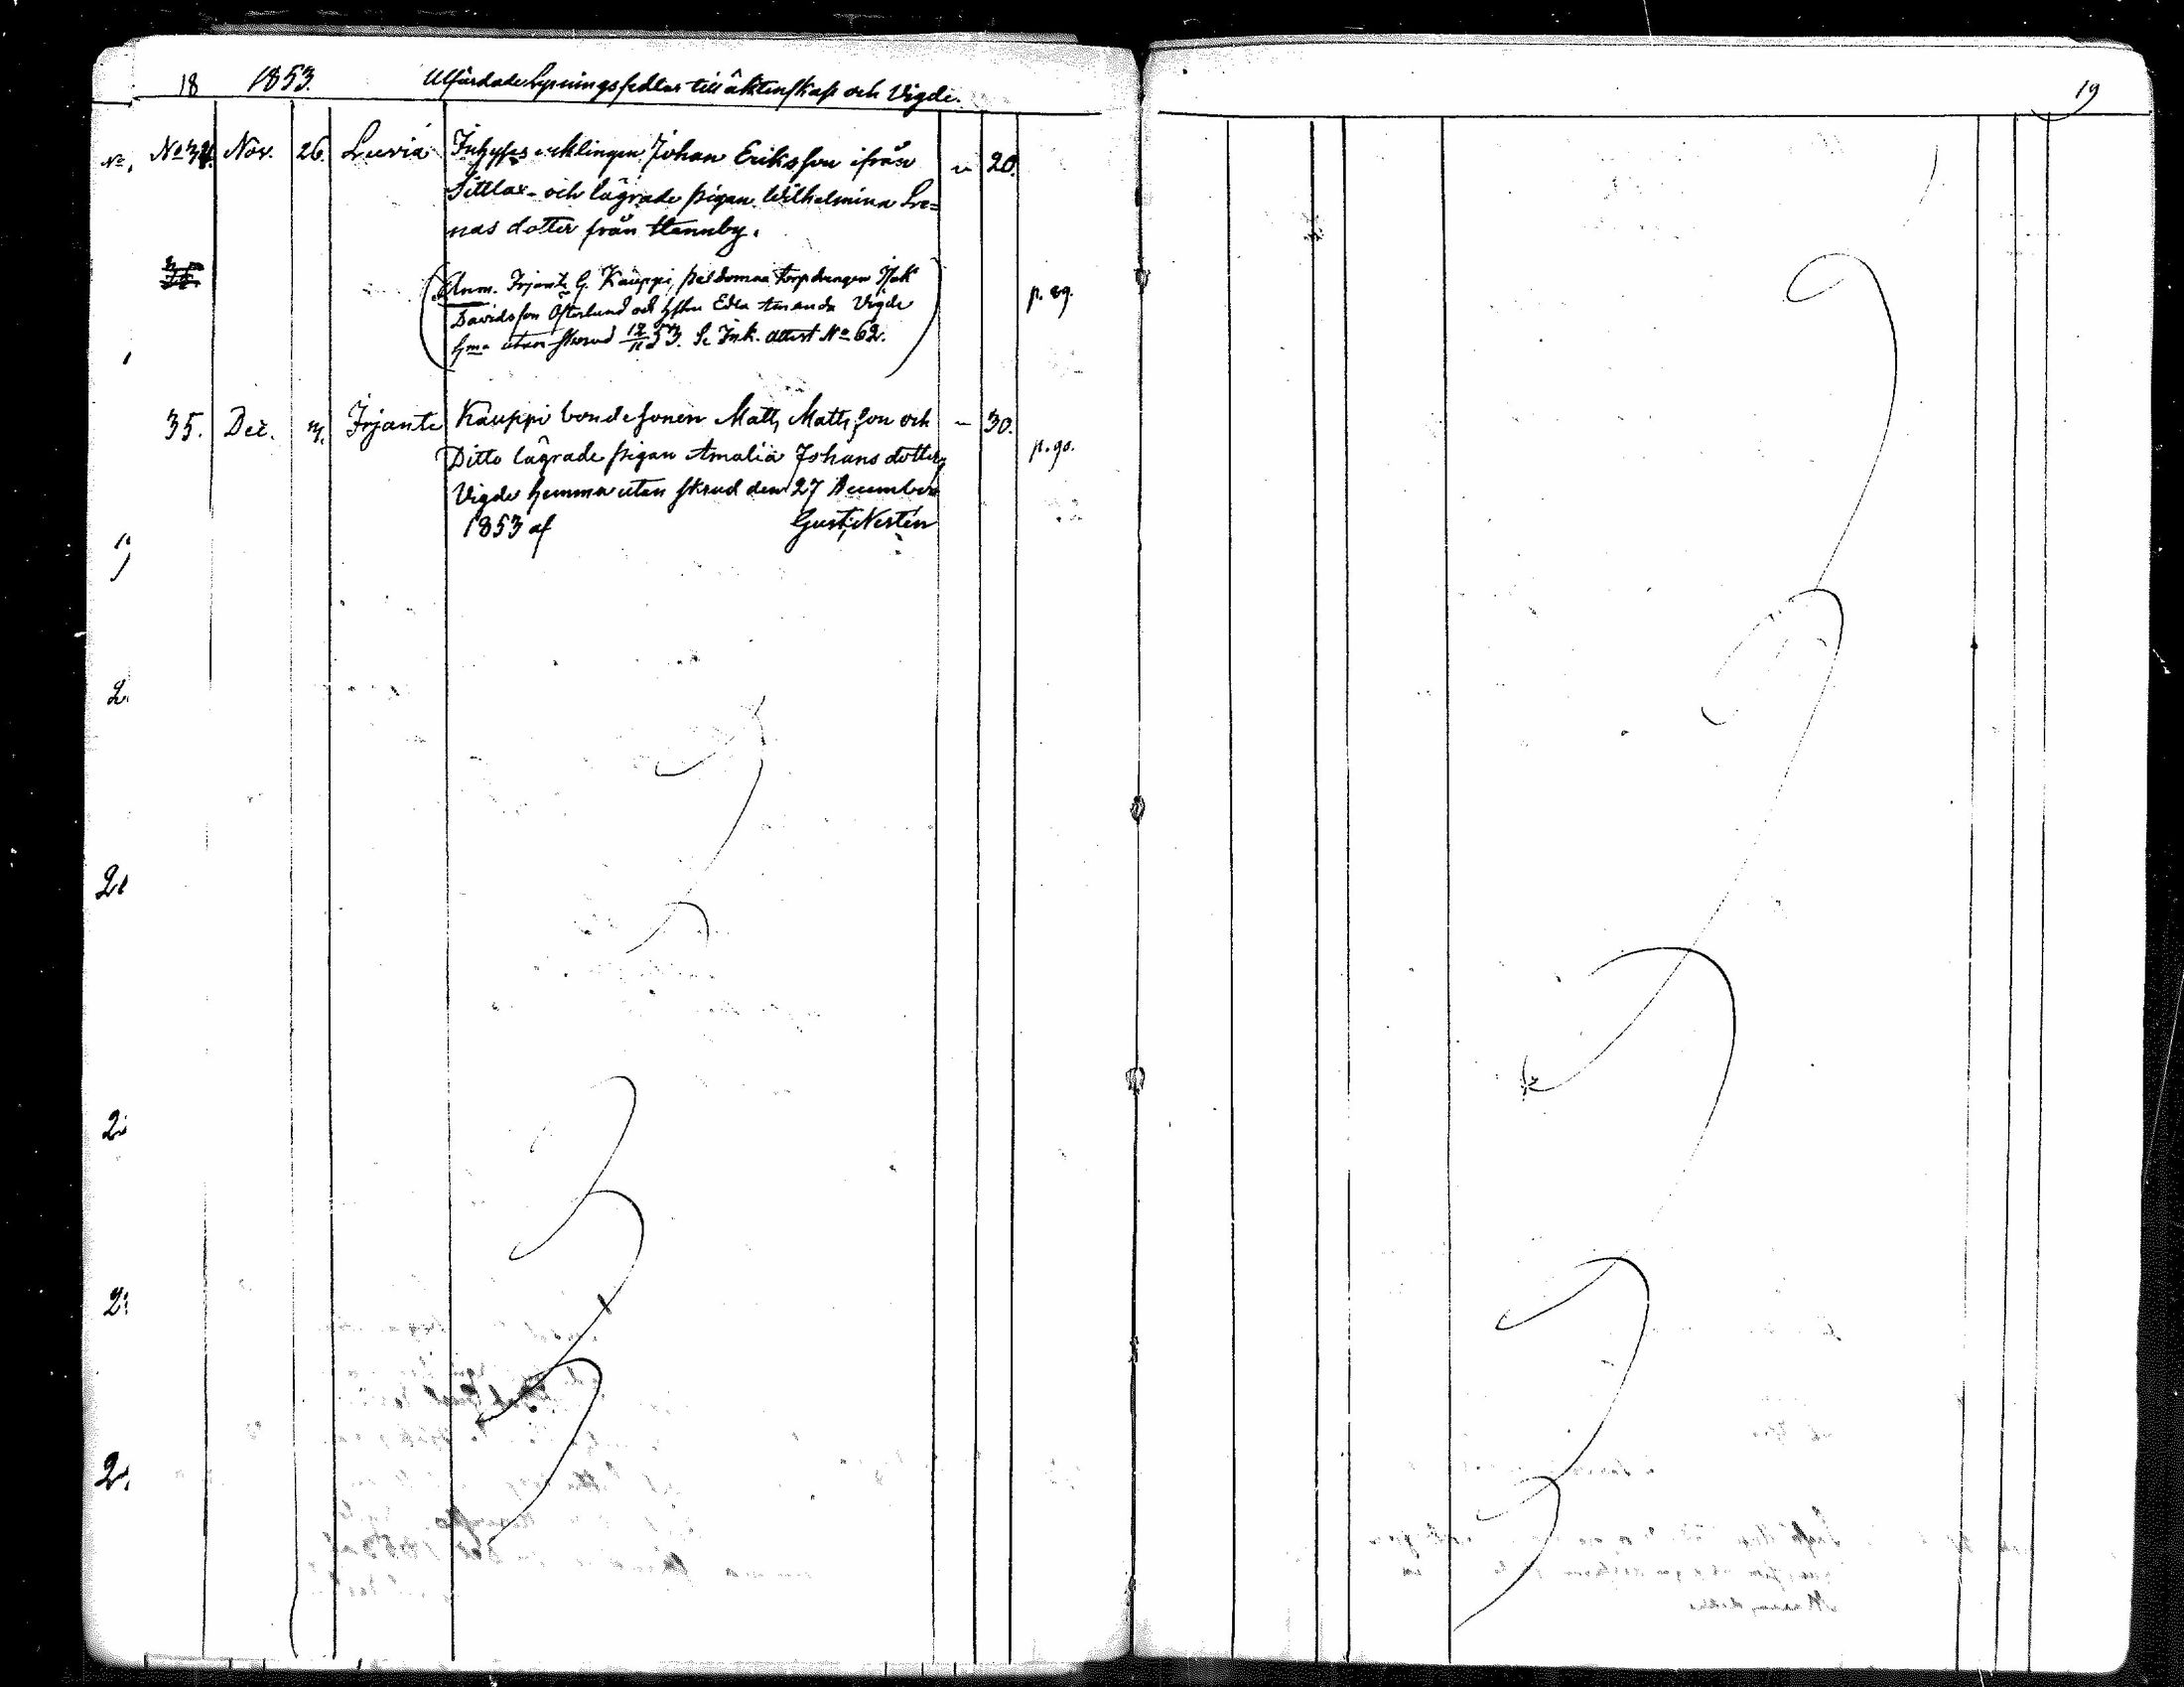 18 1853. Utfärdade Lysningssedlar till äktenskap och Vigde. 19
No. No 34. Nov. 26. Luvia Inhyses enklingen Johan Eriksson ifrån " 20.
Sittlax och lägrade pigan Wilhelmina Le=
nas dotter från Hannby.
(Anm. Irjante G. Kauppi, Torpdrengen Isak
Davidsson Österlund och Edla Amanda Vigde p. 89.
hma utan skrud 12/11 53. Se Ink. Attest No 62.)
35. Dec. 3. Irjante Kauppi bondesonen Matts Mattsson och " 30.
Ditto lägrade pigan Amalia Johansdotter, p. 90.
Vigde hemma utan skrud den 27 December
1853 af Gust. Nestén